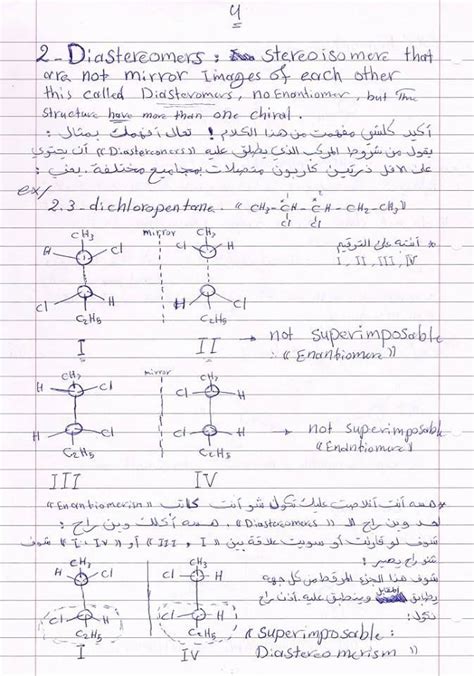 4
2- Diastereomers : stereoisomers that
are not mirror Images of each other
this called Diastereomers, no Enantiomer, but The
structure have more than one chiral.
أكيد كلشي مفهمت من هذا الكلام ! تعال أفهمك بمثال :
يقول من شروط المركب الذي يطلق عليه «Diastereomers» أن يحتوي
على الاقل ذرتين كاربون متصلات بمجاميع مختلفة. يعني :
ex/
2.3-dichloropentane. « CH₃-CH-CH-CH₂-CH₃»
Cl Cl
CH₃ mirror CH₃
Cl Cl H
Cl H H Cl
C₂H₅ C₂H₅
* أنتبه على الترقيم
I, II, III, IV
I II → not superimposable
: « Enantiomers »
CH₃ mirror CH₃
H Cl Cl H
H Cl Cl H
C₂H₅ C₂H₅
→ not superimposable
«Enantiomers»
III IV
* هسه أنت عليك تكول شو أنت كاتب «Enantiomerism»
لحد وين راح الـ «Diastereomers» ، هسه أكلك وين راح :
شوف لو قارنت أو سويت علاقة بين «I ، III» أو «I ، IV» شوف
شنو راح يصير :
CH₃ CH₃
H Cl Cl H
H Cl H
C₂H₅ C₂H₅
I IV
شوف هذا الجزء المرقط من كل جهه
يطابق وينطبق عليه. أذن راح
نكول :
« Superimposable :
Diastereomerism »